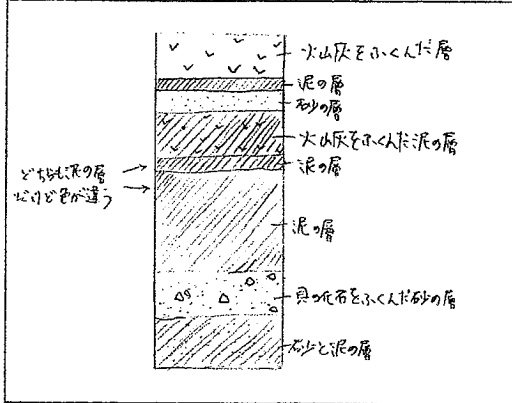 火山灰をふくんだ層
泥の層
砂の層
火山灰をふくんだ泥の層
泥の層
どちらも泥の層
だけど色が違う
泥の層
貝の化石をふくんだ砂の層
砂と泥の層